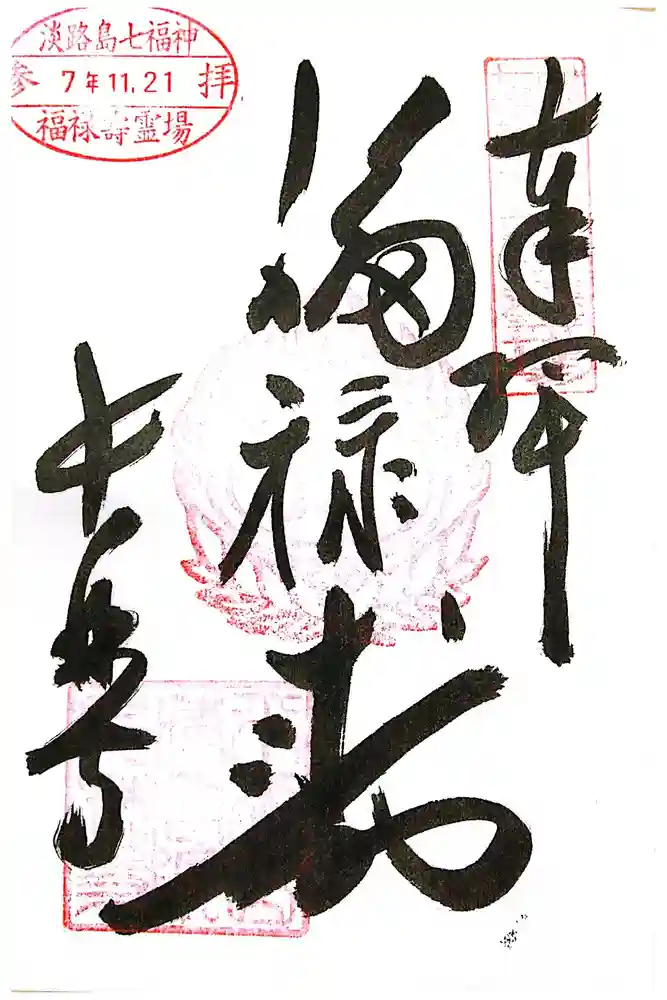 淡路島七福神
参 7年11.21 拝
福禄寿霊場
奉拝
福禄寿
長林寺